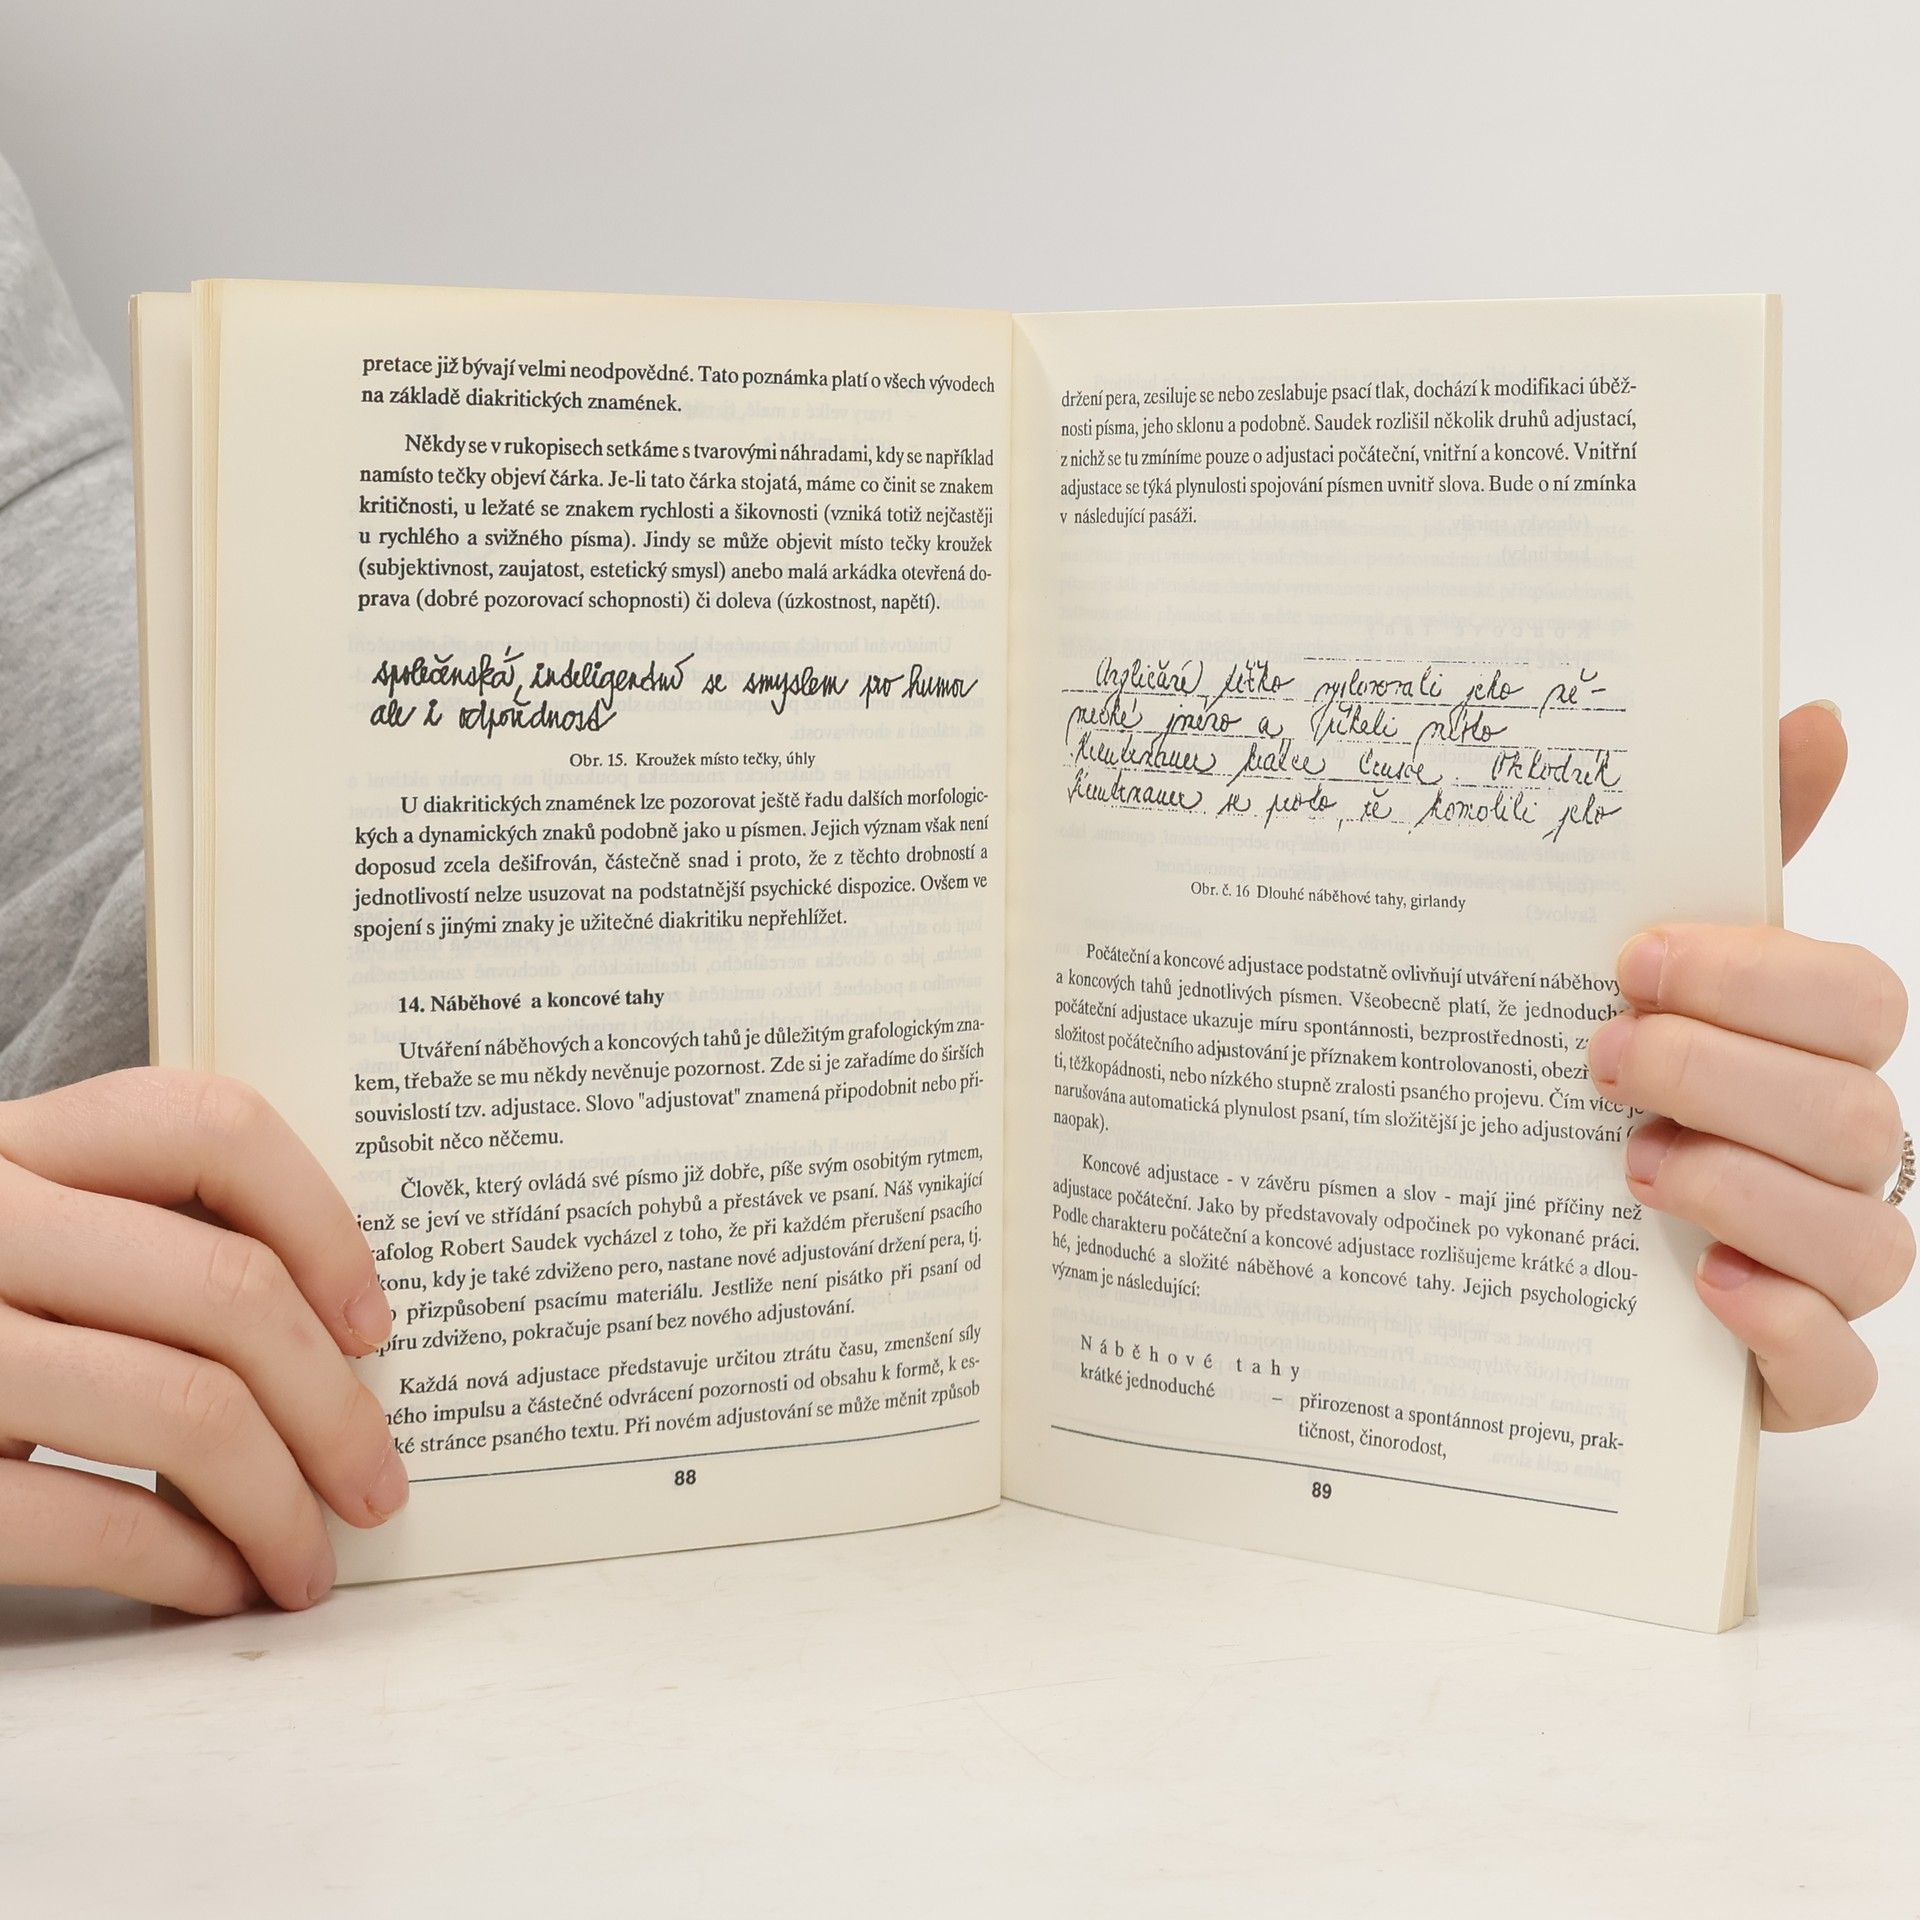 pretace již bývají velmi neodpovědné. Tato poznámka platí o všech vývodech
na základě diakritických znamének.
Někdy se v rukopisech setkáme s tvarovými náhradami, kdy se například
namísto tečky objeví čárka. Je-li tato čárka stojatá, máme co činit se znakem
kritičnosti, u ležaté se znakem rychlosti a šikovnosti (vzniká totiž nejčastěji
u rychlého a svižného písma). Jindy se může objevit místo tečky kroužek
(subjektivnost, zaujatost, estetický smysl) anebo malá arkádka otevřená do-
prava (dobré pozorovací schopnosti) či doleva (úzkostnost, napětí).
společenská, inteligentní se smyslem pro humor
ale i odpovědnost
Obr. 15. Kroužek místo tečky, úhly
U diakritických znamének lze pozorovat ještě řadu dalších morfologic-
kých a dynamických znaků podobně jako u písmen. Jejich význam však není
doposud zcela dešifrován, částečně snad i proto, že z těchto drobností a
jednotlivostí nelze usuzovat na podstatnější psychické dispozice. Ovšem ve
spojení s jinými znaky je užitečné diakritiku nepřehlížet.
14. Náběhové a koncové tahy
Utváření náběhových a koncových tahů je důležitým grafologickým zna-
kem, třebaže se mu někdy nevěnuje pozornost. Zde si je zařadíme do širších
souvislostí tzv. adjustace. Slovo "adjustovat" znamená připodobnit nebo při-
způsobit něco něčemu.
Člověk, který ovládá své písmo již dobře, píše svým osobitým rytmem,
jenž se jeví ve střídání psacích pohybů a přestávek ve psaní. Náš vynikající
rafolog Robert Saudek vycházel z toho, že při každém přerušení psacího
konu, kdy je také zdviženo pero, nastane nové adjustování držení pera, tj.
o přizpůsobení psacímu materiálu. Jestliže není pisátko při psaní od
píru zdviženo, pokračuje psaní bez nového adjustování.
Každá nová adjustace představuje určitou ztrátu času, zmenšení síly
ného impulsu a částečné odvrácení pozornosti od obsahu k formě, k es-
ké stránce psaného textu. Při novém adjustování se může měnit způsob
88
držení pera, zesiluje se nebo zeslabuje psací tlak, dochází k modifikaci úběž-
nosti písma, jeho sklonu a podobně. Saudek rozlišil několik druhů adjustací,
z nichž se tu zmíníme pouze o adjustaci počáteční, vnitřní a koncové. Vnitřní
adjustace se týká plynulosti spojování písmen uvnitř slova. Bude o ní zmínka
v následující pasáži.
Angličané těžko vyslovovali jeho ně-
mecké jméno a říkali místo
krátce Crusoe.
se proto, že komolili jeho
Obr. č. 16 Dlouhé náběhové tahy, girlandy
Počáteční a koncové adjustace podstatně ovlivňují utváření náběhový
a koncových tahů jednotlivých písmen. Všeobecně platí, že jednoduch
počáteční adjustace ukazuje míru spontánnosti, bezprostřednosti,
složitost počátečního adjustování je příznakem kontrolovanosti, obezř
ti, těžkopádnosti, nebo nízkého stupně zralosti psaného projevu. Čím více je
narušována automatická plynulost psaní, tím složitější je jeho adjustování (
naopak).
Koncové adjustace - v závěru písmen a slov - mají jiné příčiny než
adjustace počáteční. Jako by představovaly odpočinek po vykonané práci.
Podle charakteru počáteční a koncové adjustace rozlišujeme krátké a dlou-
hé, jednoduché a složité náběhové a koncové tahy. Jejich psychologický
význam je následující:
Náběhové tahy
krátké jednoduché – přirozenost a spontánnost projevu, prak-
tičnost, činorodost,
89